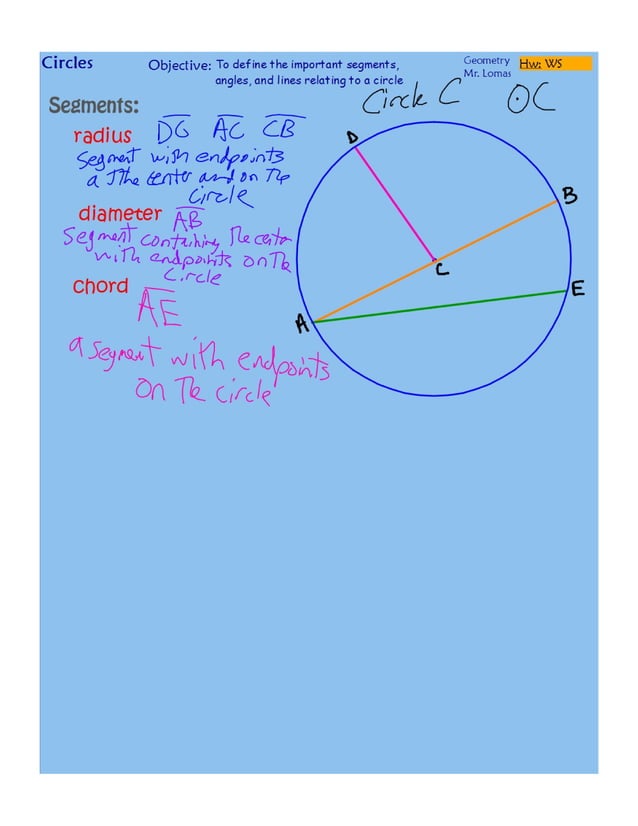 Circles
Objective: To define the important segments,
angles, and lines relating to a circle
Geometry
Mr. Lomas
Hw: WS
Circle C ⊙C
Segments:
radius DC AC CB
Segment with endpoints
a the center and on the
circle
diameter AB
Segment containing the center
with endpoints on the
Circle
chord
AE
a segment with endpoints
on the circle
D
B
C
E
A